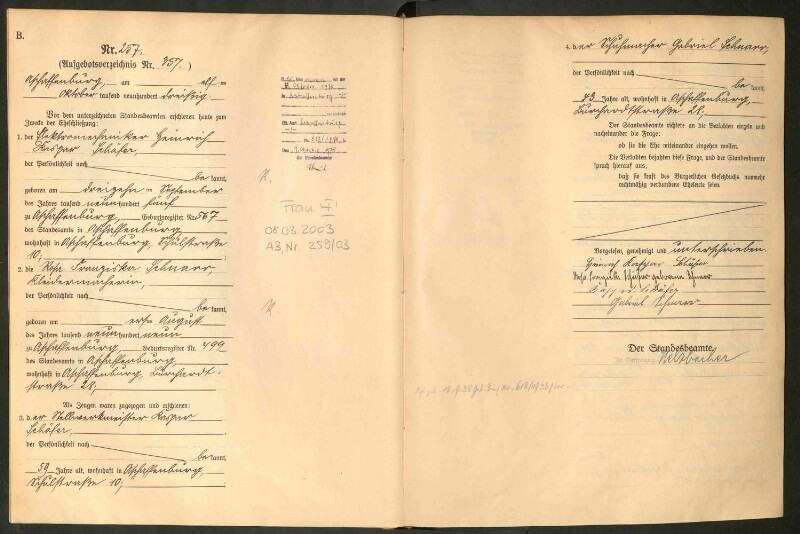 B.
Nr. 257.
(Aufgebotsverzeichnis Nr. 357.)
Aschaffenburg, am elften
Oktober tausend neunhundert dreißig.
Vor dem unterzeichneten Standesbeamten erschienen heute zum
Zwecke der Eheschließung:
1. der Elektromechaniker Heinrich
Kaspar Schäfer,
der Persönlichkeit nach
bekannt,
geboren am dreizehnten September
des Jahres tausend neunhundert fünf
zu Aschaffenburg, Geburtsregister Nr. 567
des Standesamts in Aschaffenburg,
wohnhaft in Aschaffenburg, Schulstraße
10;
2. die Rosa Franziska Schnarr,
Kleidermacherin,
der Persönlichkeit nach
bekannt,
geboren am ersten August
des Jahres tausend neunhundert neun
zu Aschaffenburg, Geburtsregister Nr. 499
des Standesamts in Aschaffenburg,
wohnhaft in Aschaffenburg, Burchardt-
straße 28;
Als Zeugen waren zugezogen und erschienen:
3. der Stellwerkmeister Kaspar
Schäfer,
der Persönlichkeit nach
bekannt,
59 Jahre alt, wohnhaft in Aschaffenburg,
Schulstraße 10;
Frau
08.03.2003
A3, Nr. 259/03
4. der Schuhmacher Gabriel Schnarr,
der Persönlichkeit nach
bekannt,
43 Jahre alt, wohnhaft in Aschaffenburg,
Burchardtstraße 28;
Der Standesbeamte richtete an die Verlobten einzeln und
nacheinander die Frage:
ob sie die Ehe miteinander eingehen wollen.
Die Verlobten bejahten diese Frage, und der Standesbeamte
sprach hierauf aus,
daß sie kraft des Bürgerlichen Gesetzbuchs nunmehr
rechtmäßig verbundene Eheleute seien.
Vorgelesen, genehmigt und unterschrieben.
Heinrich Kaspar Schäfer
Rosa Franziska Schäfer geborene Schnarr
Gabriel Schnarr
Der Standesbeamte.